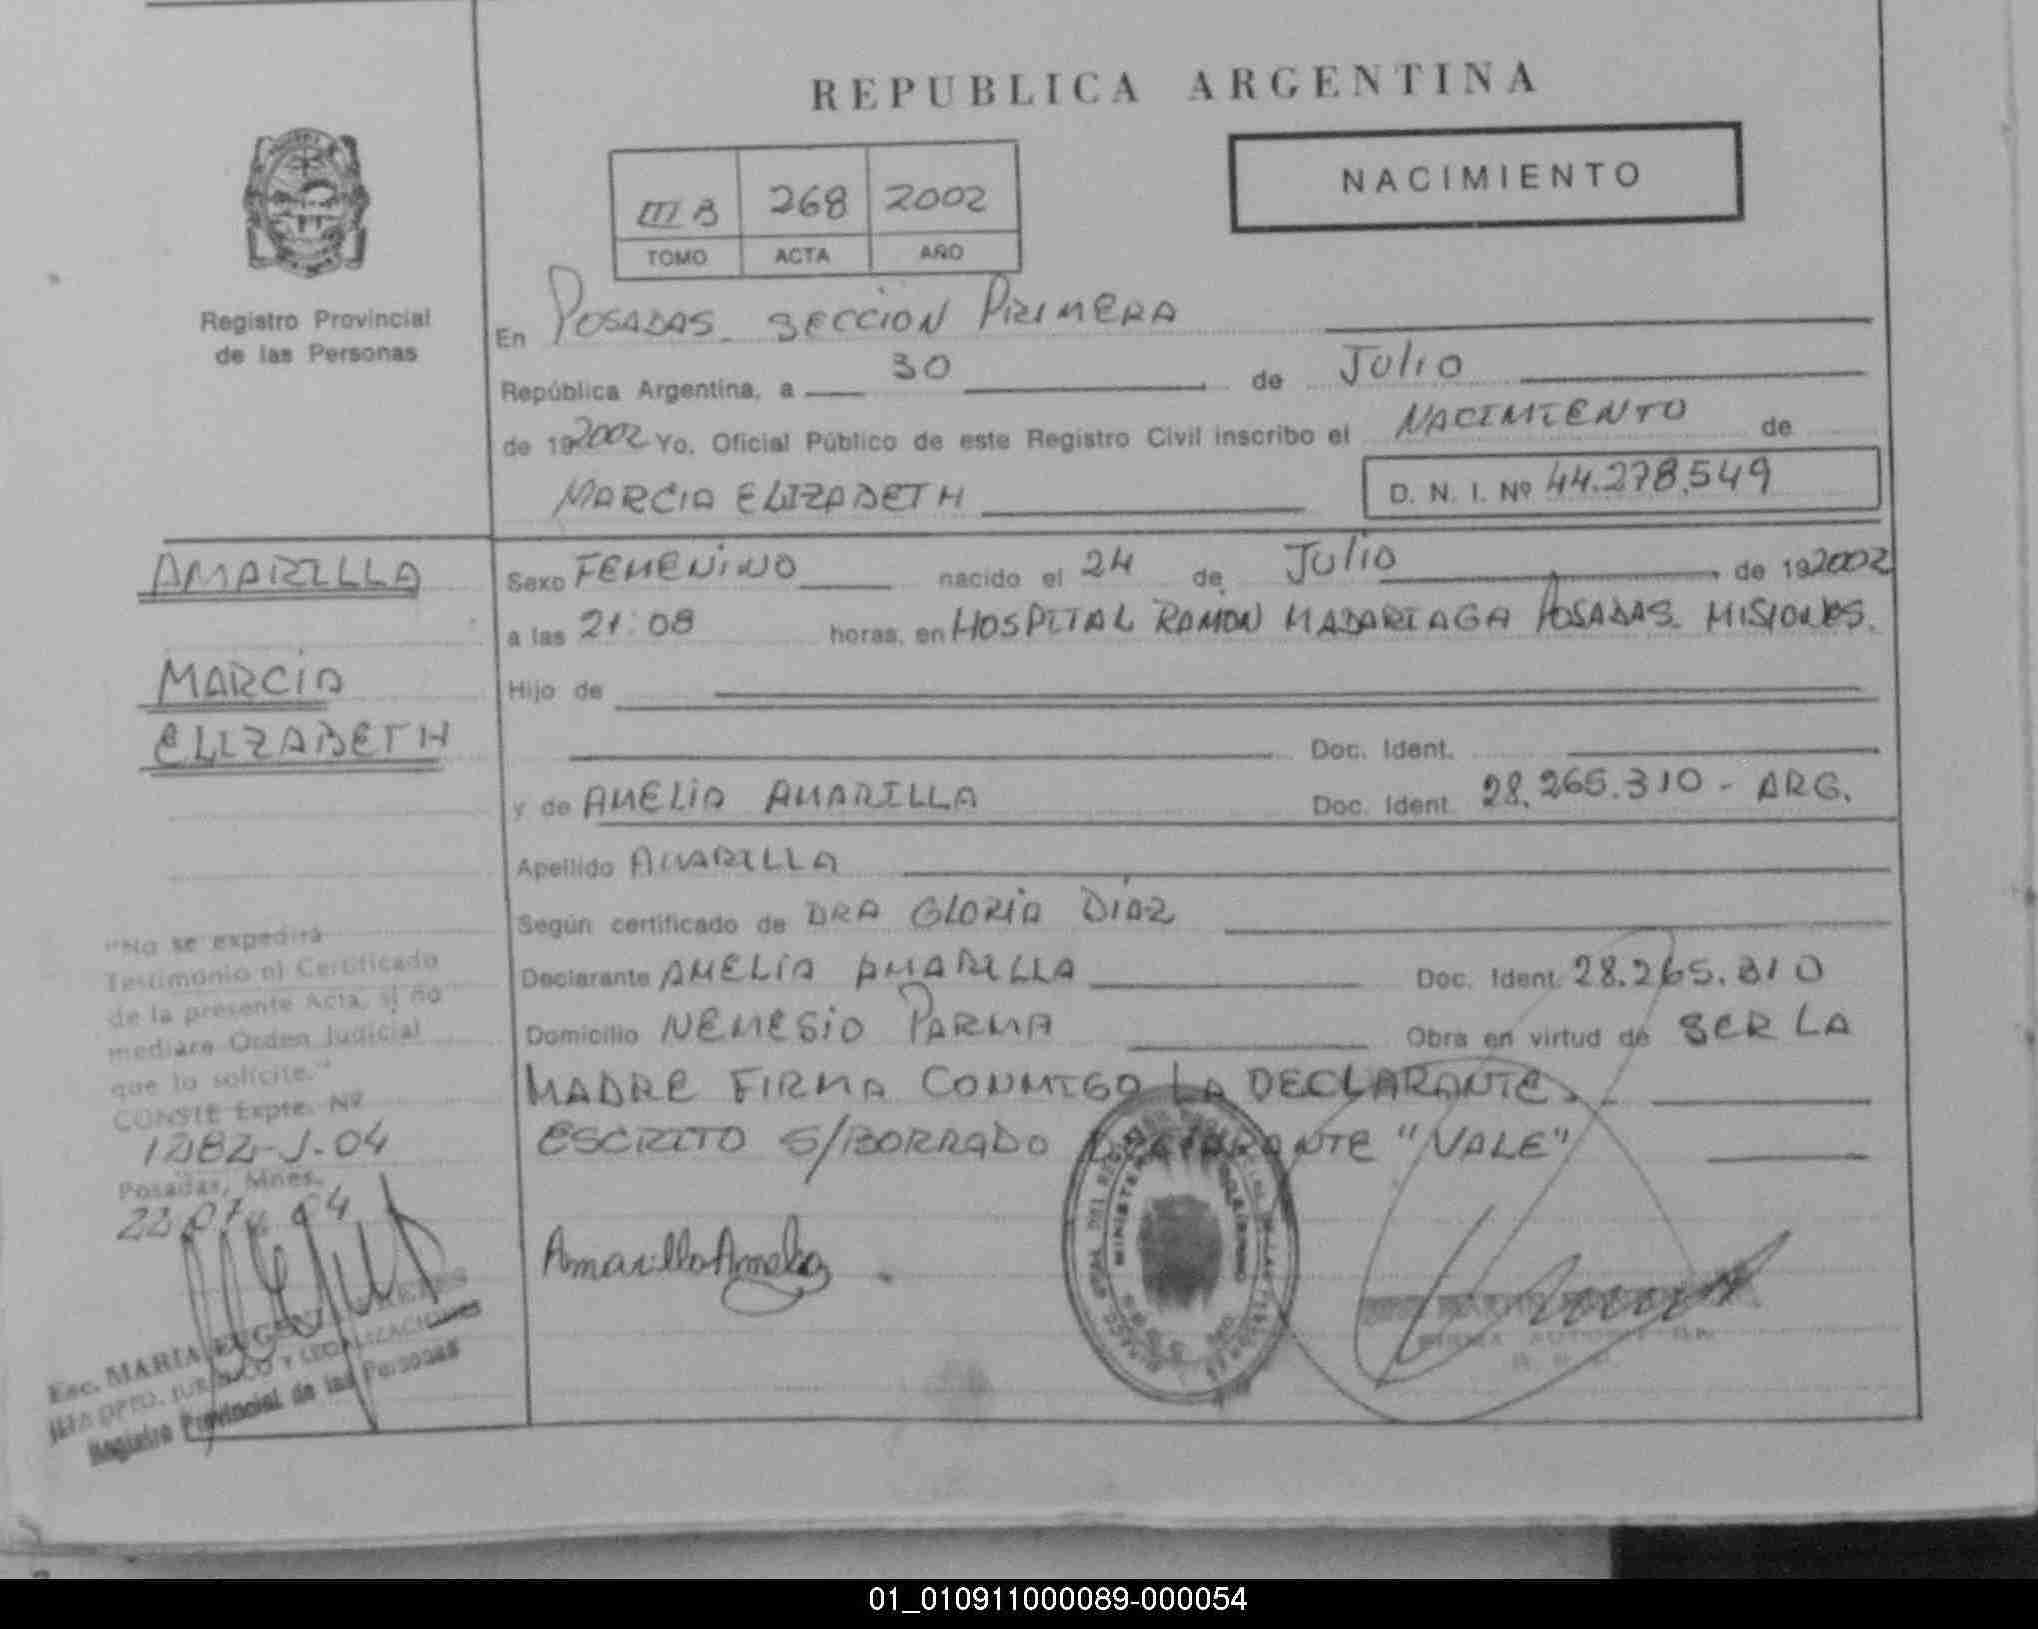 REPUBLICA ARGENTINA
NACIMIENTO
III B 268 2002
TOMO ACTA AÑO
Registro Provincial
de las Personas
En POSADAS SECCION PRIMERA
República Argentina, a 30 de JULIO
de 192002 Yo, Oficial Público de este Registro Civil inscribo el NACIMIENTO de
MARCIA ELIZABETH D. N. I. Nº 44.278.549
AMARILLA
MARCIA
ELIZABETH
Sexo FEMENINO nacido el 24 de JULIO de 192002
a las 21:08 horas, en HOSPITAL RAMON MADARIAGA POSADAS. MISIONES.
Hijo de
Doc. Ident.
y de AMELIA AMARILLA Doc. Ident. 28.265.310 - ARG.
Apellido AMARILLA
Según certificado de DRA GLORIA DIAZ
Declarante AMELIA AMARILLA Doc. Ident. 28.265.310
Domicilio NEMESIO PARMA Obra en virtud de SER LA
MADRE FIRMA CONMIGO LA DECLARANTE.
ESCRITO S/BORRADO DECLARANTE "VALE"
Amarilla Amelia
"No se expedirá
Testimonio ni Certificado
de la presente Acta, si no
mediare Orden Judicial
que lo solicite."
CONSTE Expte. Nº
1282-J-04
Posadas, Mnes.
22 07 04
Esc. MARIA
DPTO. JURIDICO Y LEGALIZACIONES
Registro Provincial de las Personas
01_010911000089-000054